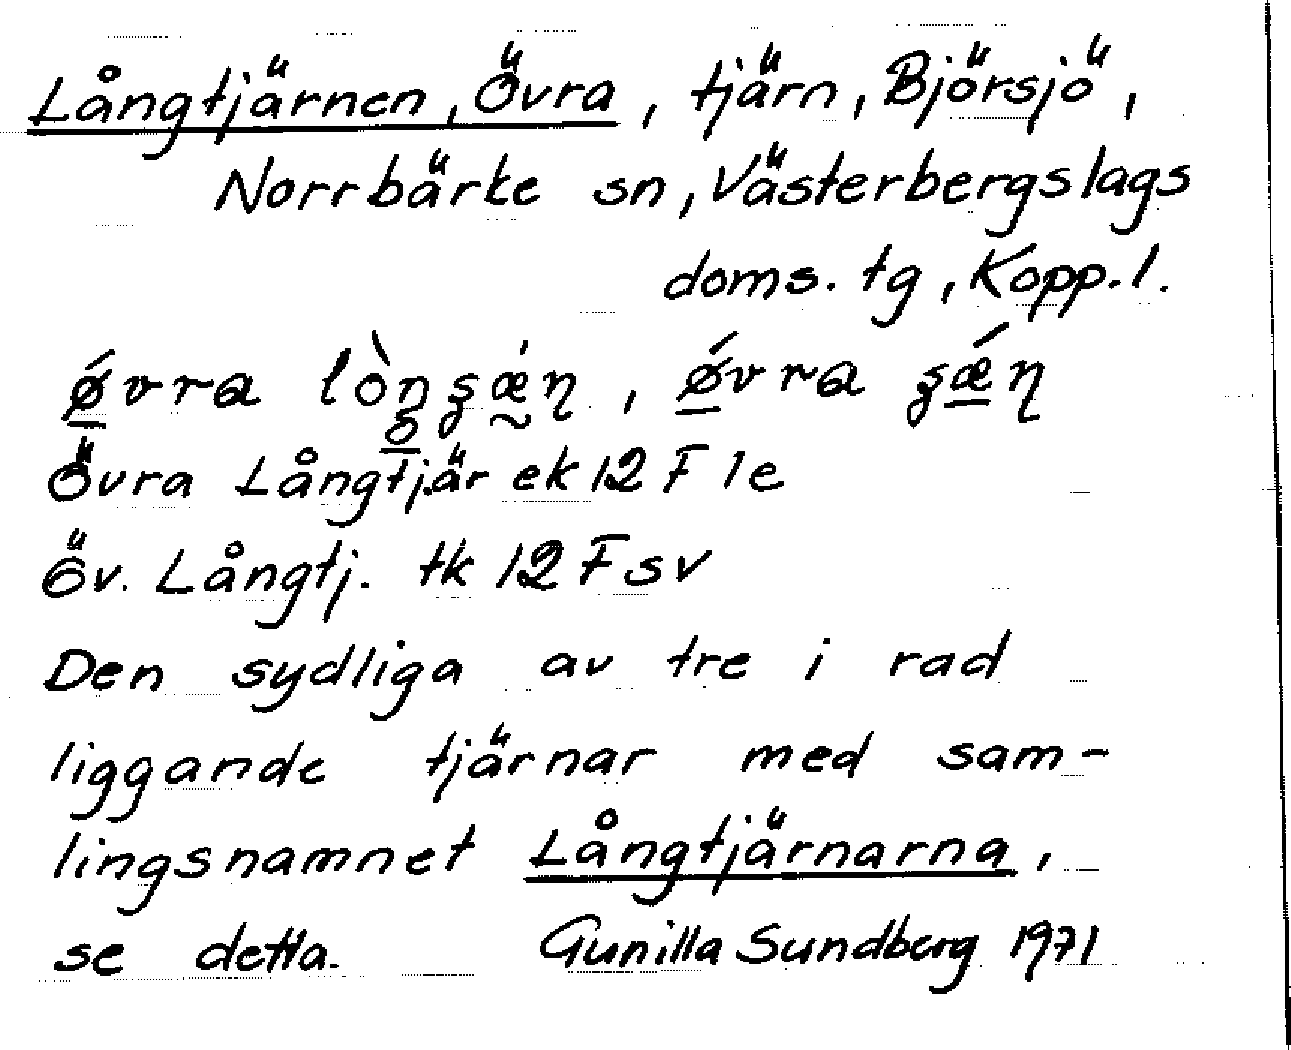 Långtjärnen, Övra, tjärn, Björsjö,
Norrbärke sn, Västerbergslags
doms. tg, Kopp. l.
ǿvra
Övra Långtjär ek 12 F 1e
Öv. Långtj. tk 12 F sv
Den sydliga av tre i rad
liggande tjärnar med sam-
lingsnamnet Långtjärnarna,
se detta. Gunilla Sundberg 1971